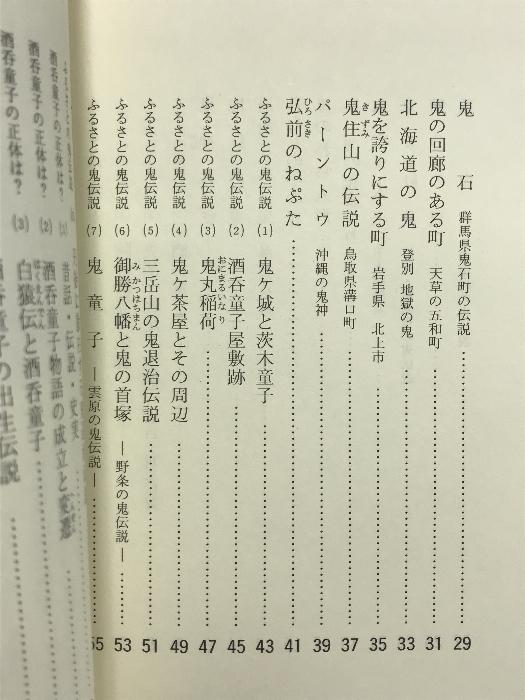 鬼石 群馬県鬼石町の伝説……29
鬼の回廊のある町 天草の五和町……31
北海道の鬼 登別 地獄の鬼……33
鬼を誇りにする町 岩手県 北上市……35
鬼住山の伝説 鳥取県溝口町……37
きずみ
パーントゥ 沖縄の鬼神……39
弘前のねぷた……41
ひろさき
ふるさとの鬼伝説 (1) 鬼ケ城と茨木童子……43
ふるさとの鬼伝説 (2) 酒呑童子屋敷跡……45
ふるさとの鬼伝説 (3) 鬼丸稲荷……47
おにまるいなり
ふるさとの鬼伝説 (4) 鬼ケ茶屋とその周辺……49
ふるさとの鬼伝説 (5) 三岳山の鬼退治伝説……51
ふるさとの鬼伝説 (6) 御勝八幡と鬼の首塚 ―野条の鬼伝説―……53
みかつはちまん
ふるさとの鬼伝説 (7) 鬼童子 ―雲原の鬼伝説―……55
昔話・伝説・史実
酒呑童子の正体は? (2) 酒呑童子物語の成立と変遷
酒呑童子の正体は? (3) 白猿伝と酒呑童子
酒呑童子の正体は?
子の出生伝説